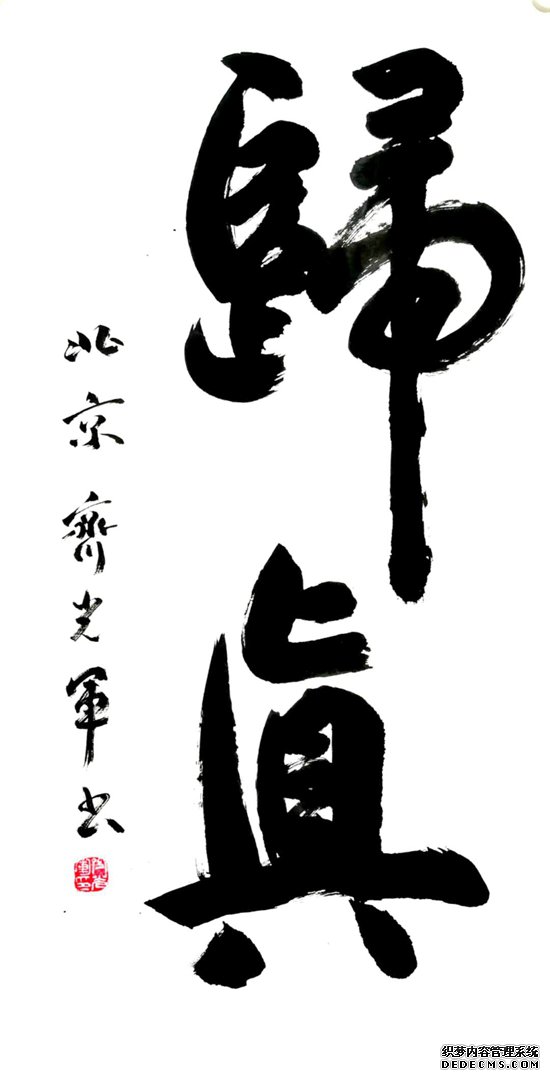 歸真
北京齊光軍书
织梦内容管理系统
DEDECMS.COM